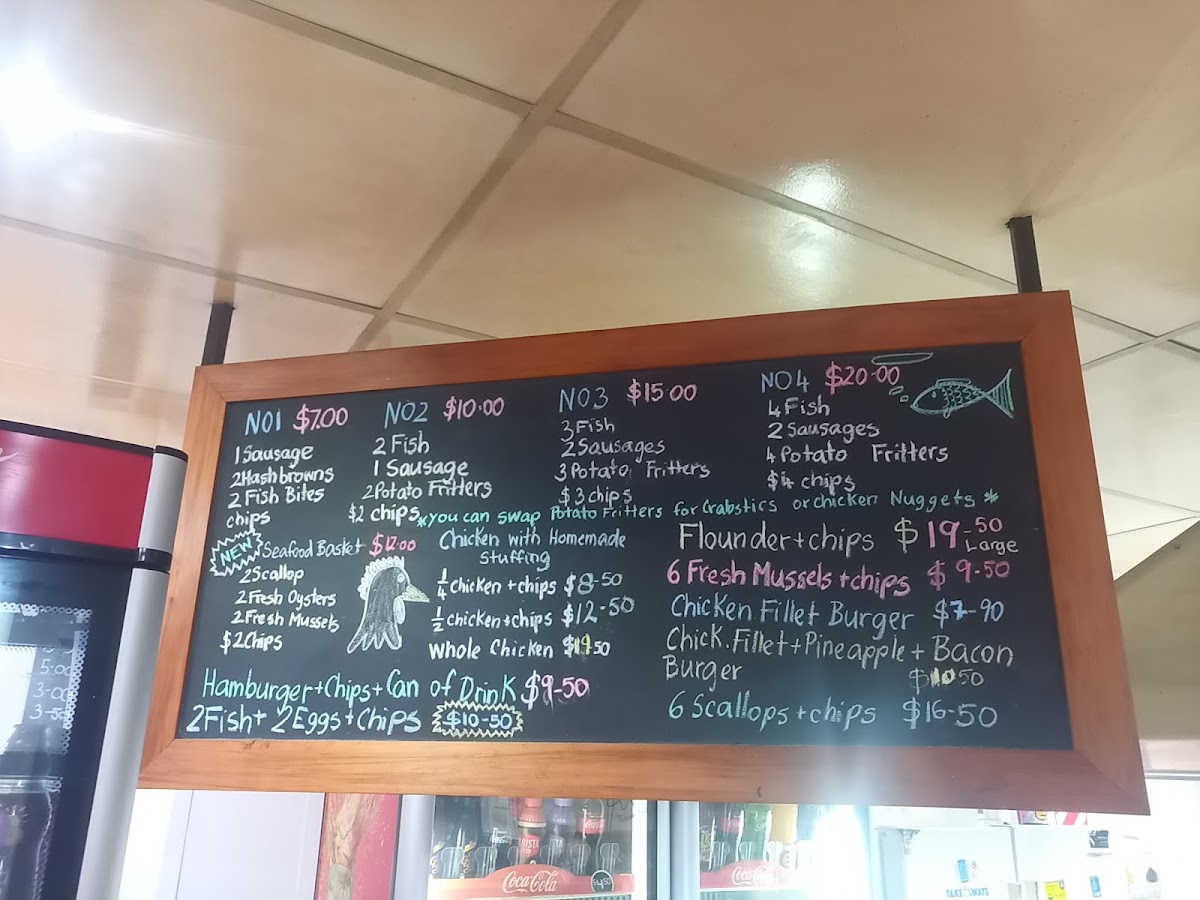 NO1 $7.00
1 Sausage
2 Hashbrowns
2 Fish Bites
chips
NO2 $10.00
2 Fish
1 Sausage
2 Potato Fritters
$2 chips
NO3 $15.00
3 Fish
2 Sausages
3 Potato Fritters
$3 chips
NO4 $20.00
4 Fish
2 Sausages
4 Potato Fritters
$4 chips
*you can swap Potato Fritters for Crabstics or chicken Nuggets*
NEW Seafood Basket $12.00
2 Scallop
2 Fresh Oysters
2 Fresh Mussels
$2 Chips
Chicken with Homemade
stuffing
1/4 chicken + chips $8-50
1/2 chicken + chips $12-50
Whole Chicken $19.50
Hamburger + Chips + Can of Drink $9-50
2 Fish + 2 Eggs + Chips $10-50
Flounder + chips $19-50
Large
6 Fresh Mussels + chips $9-50
Chicken Fillet Burger $7-90
Chick. Fillet + Pineapple + Bacon
Burger $10.50
6 Scallops + chips $16-50
5-00
3-00
3-50
Coca-Cola $4.50
Coca-Cola
TAKEAWAYS